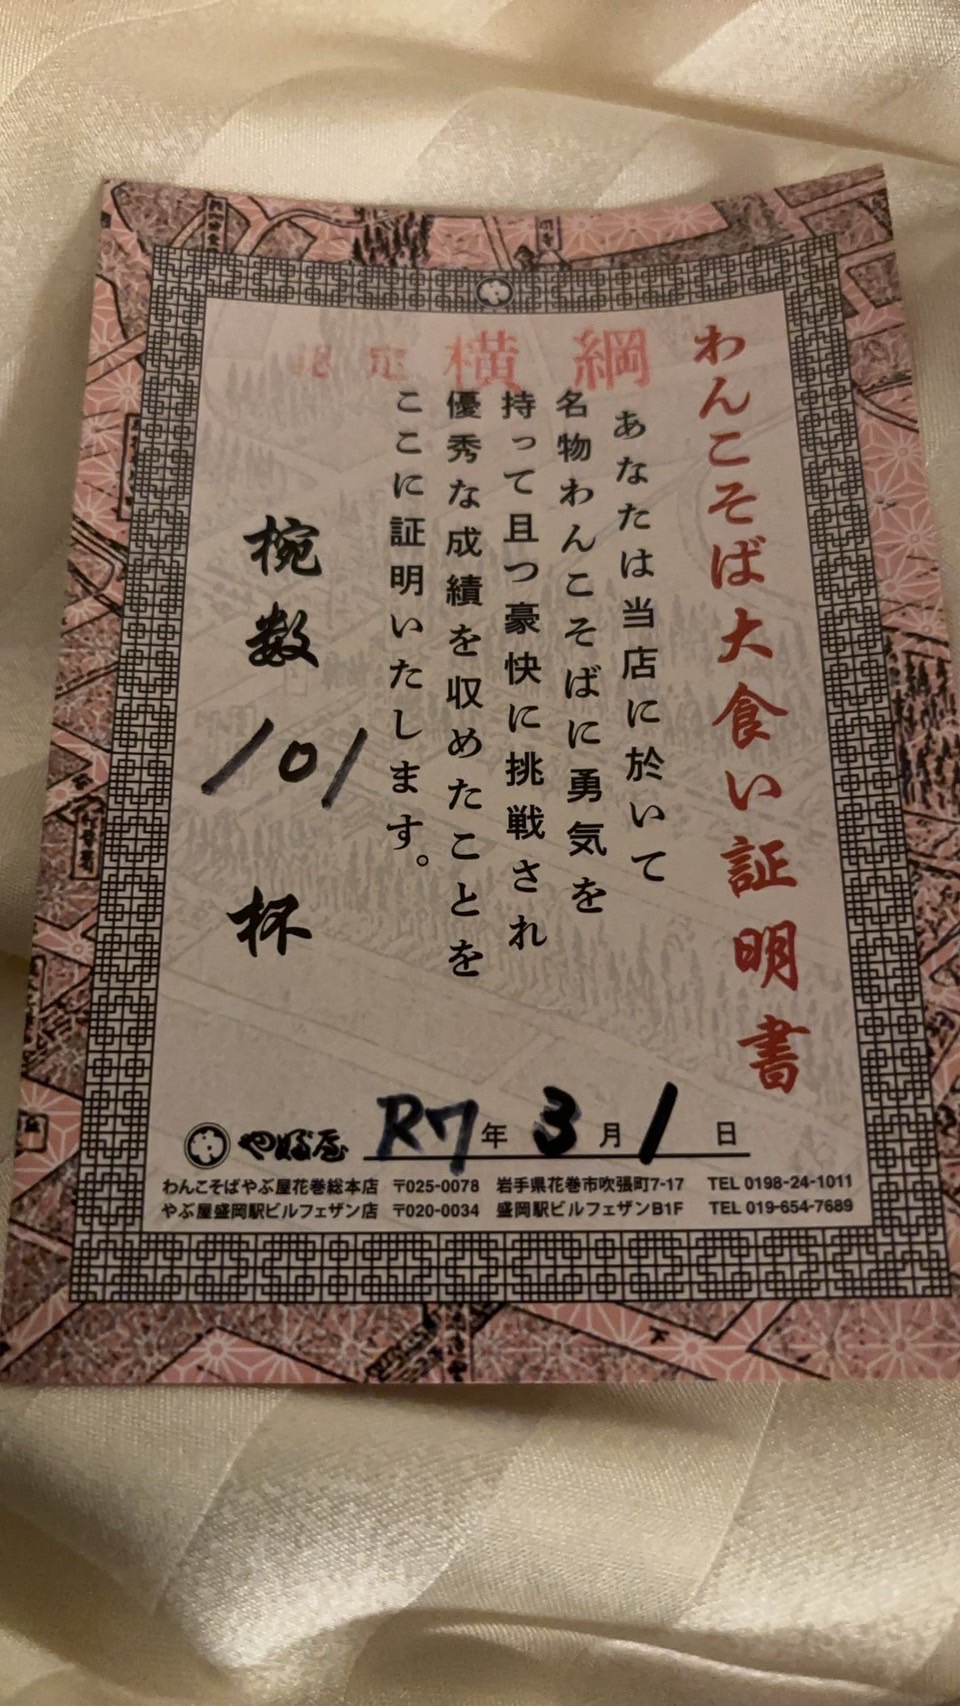 わんこそば大食い証明書
認定 横綱
あなたは当店に於いて
名物わんこそばに勇気を
持って且つ豪快に挑戦され
優秀な成績を収めたことを
ここに証明いたします。
椀数 101 杯
やぶ屋 R7年 3月 1日
わんこそばやぶ屋花巻総本店 〒025-0078 岩手県花巻市吹張町7-17 TEL 0198-24-1011
やぶ屋盛岡駅ビルフェザン店 〒020-0034 盛岡駅ビルフェザンB1F TEL 019-654-7689